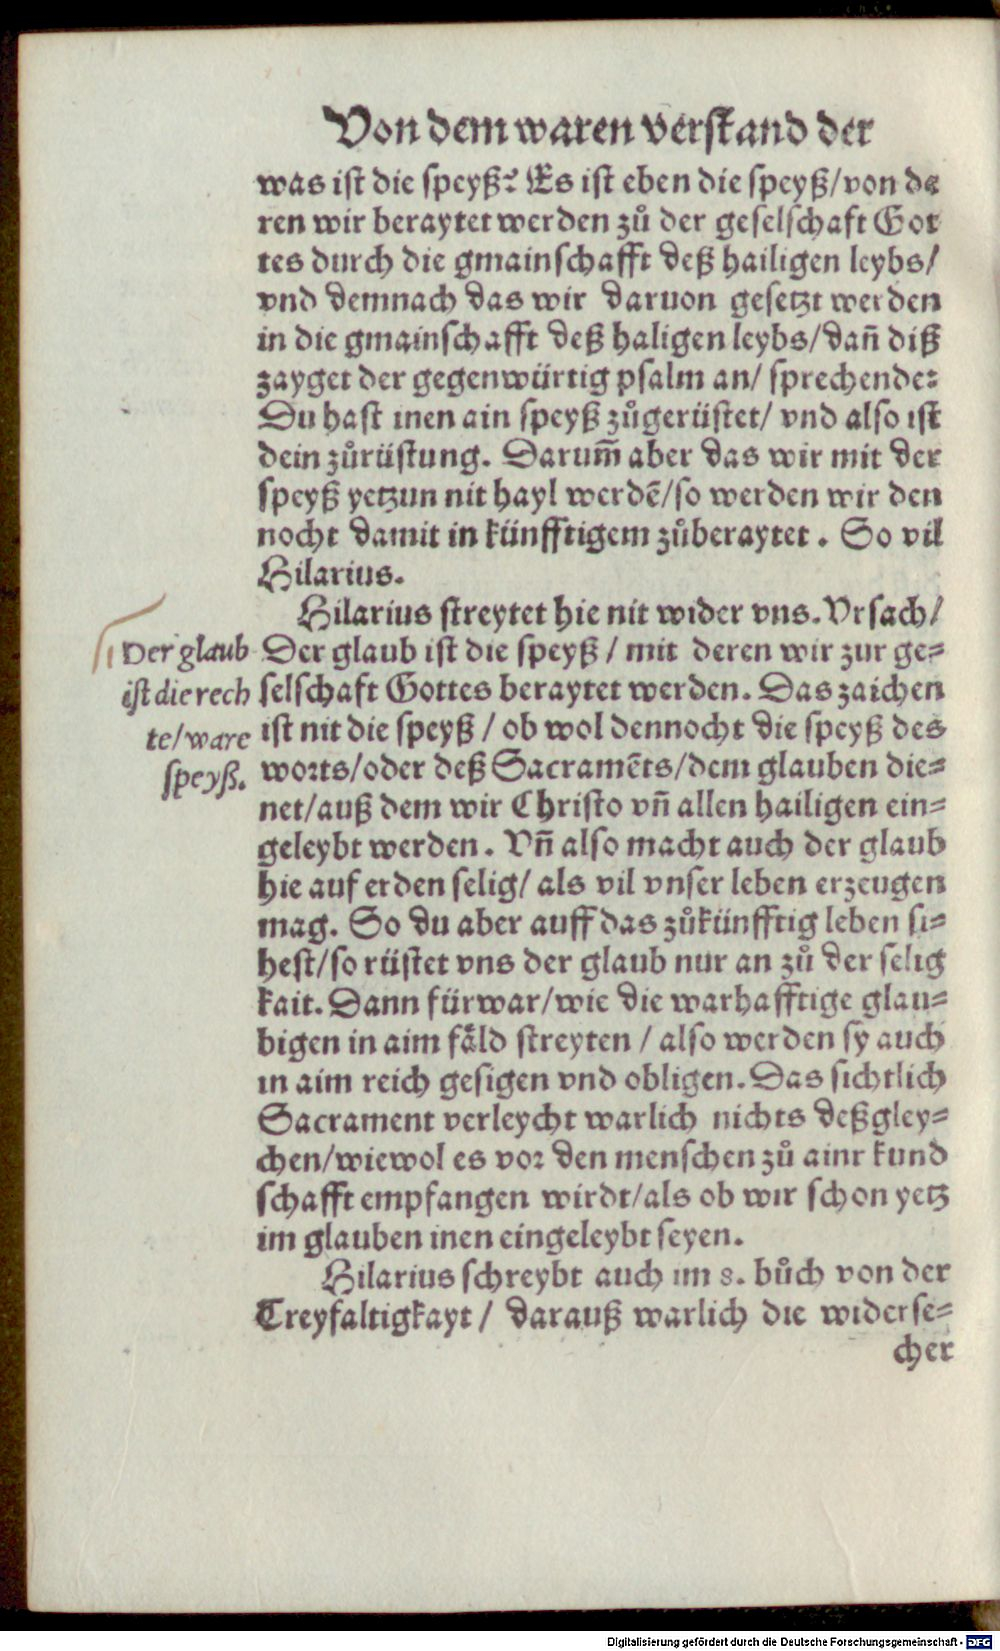 Von dem waren verstand der
was ist die speyß? Es ist eben die speyß/von de
ren wir beraytet werden zuͦ der geselschaft Got
tes durch die gmainschafft deß hailigen leybs/
vnd demnach das wir daruon gesetzt werden
in die gmainschafft deß haligen leybs/dañ diß
zayget der gegenwürtig psalm an/ sprechende:
Du hast inen ain speyß zuͦgerüstet/ vnd also ist
dein zuͦrüstung. Darum̃ aber das wir mit der
speyß yetzun nit hayl werdē/so werden wir den
nocht damit in künfftigem zuͦberaytet. So vil
Hilarius.
Hilarius streytet hie nit wider vns. Vrsach/
Der glaub ist die speyß/ mit deren wir zur ge=
selschaft Gottes beraytet werden. Das zaichen
ist nit die speyß/ ob wol dennocht die speyß des
worts/oder deß Sacramēts/dem glauben die=
net/auß dem wir Christo vñ allen hailigen ein=
geleybt werden. Vñ also macht auch der glaub
hie auf erden selig/ als vil vnser leben erzeugen
mag. So du aber auff das zuͦkünfftig leben si=
hest/so rüstet vns der glaub nur an zuͦ der selig
kait. Dann fürwar/wie die warhafftige glau=
bigen in aim fäld streyten/ also werden sy auch
in aim reich gesigen vnd obligen. Das sichtlich
Sacrament verleycht warlich nichts deßgley=
chen/wiewol es vor den menschen zuͦ ainr kund
schafft empfangen wirdt/als ob wir schon yetz
im glauben inen eingeleybt seyen.
Hilarius schreybt auch im 8. buͦch von der
Treyfaltigkayt/ darauß warlich die widerse=
cher
Der glaub
ist die rech
te/ware
speyß.
Digitalisierung gefördert durch die Deutsche Forschungsgemeinschaft - DFG